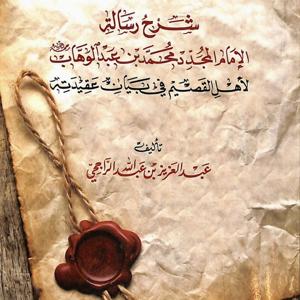 شرح رسالة
الإمام المجدد محمد بن عبد الوهاب
لأهل القصيم في بيان عقيدته
تأليف
عبد العزيز بن عبد الله الراجحي